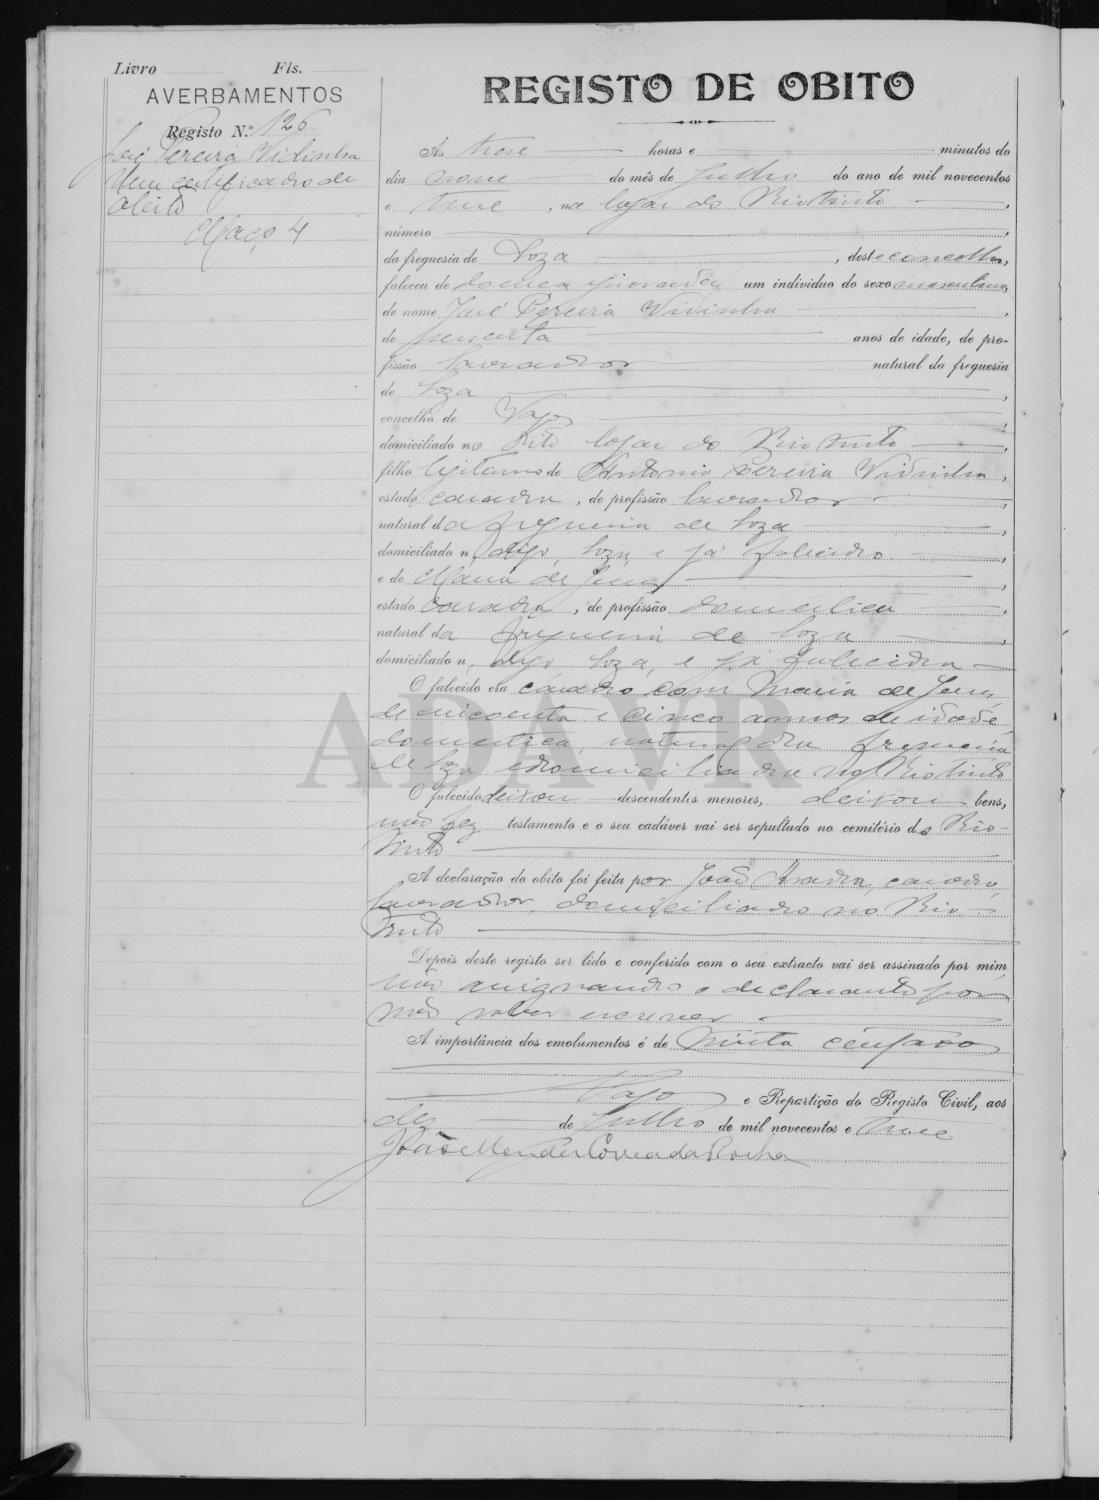 Livro Fls.
AVERBAMENTOS
Registo N.º 126
José Pereira Vidinha
Um certificado de
obito
Maço 4
REGISTO DE OBITO
Ás treze horas e minutos do
dia nove do mês de Julho do ano de mil novecentos
e treze, no lugar do Rio Tinto,
número
da freguesia de Soza, deste concelho,
faleceu de doença ignorada um individuo do sexo masculino,
de nome José Pereira Vidinha,
de sessenta anos de idade, de pro-
fissão lavrador natural da freguesia
de Soza,
concelho de Vagos,
domiciliado no dito lugar do Rio Tinto,
filho legitimo de Antonio Pereira Vidinha,
estado casado, de profissão lavrador,
natural da freguesia de Soza,
domiciliado n, digo, Soza, e já falecido,
e de Maria de Jesus,
estado casada, de profissão domestica,
natural da freguesia de Soza,
domiciliado n, digo Soza, e já falecida
O falecido era casado com Maria de Jesus,
de cincoenta e cinco annos de idade,
domestica, natural da freguesia
de Soza e domiciliada no Rio Tinto
O falecido deixou descendentes menores, deixou bens,
não fez testamento e o seu cadáver vai ser sepultado no cemitério do Rio-
Tinto
A declaração do obito foi feita por João casado,
lavrador, domiciliado no Rio-
Tinto
Depois deste registo ser lido e conferido com o seu extracto vai ser assinado por mim
não assignando o declarante por
não saber escrever
A importância dos emolumentos é de trinta centavos
Vagos e Repartição do Registo Civil, aos
dez de Julho de mil novecentos e treze
João Mendes Correa da Rocha
ADAVR